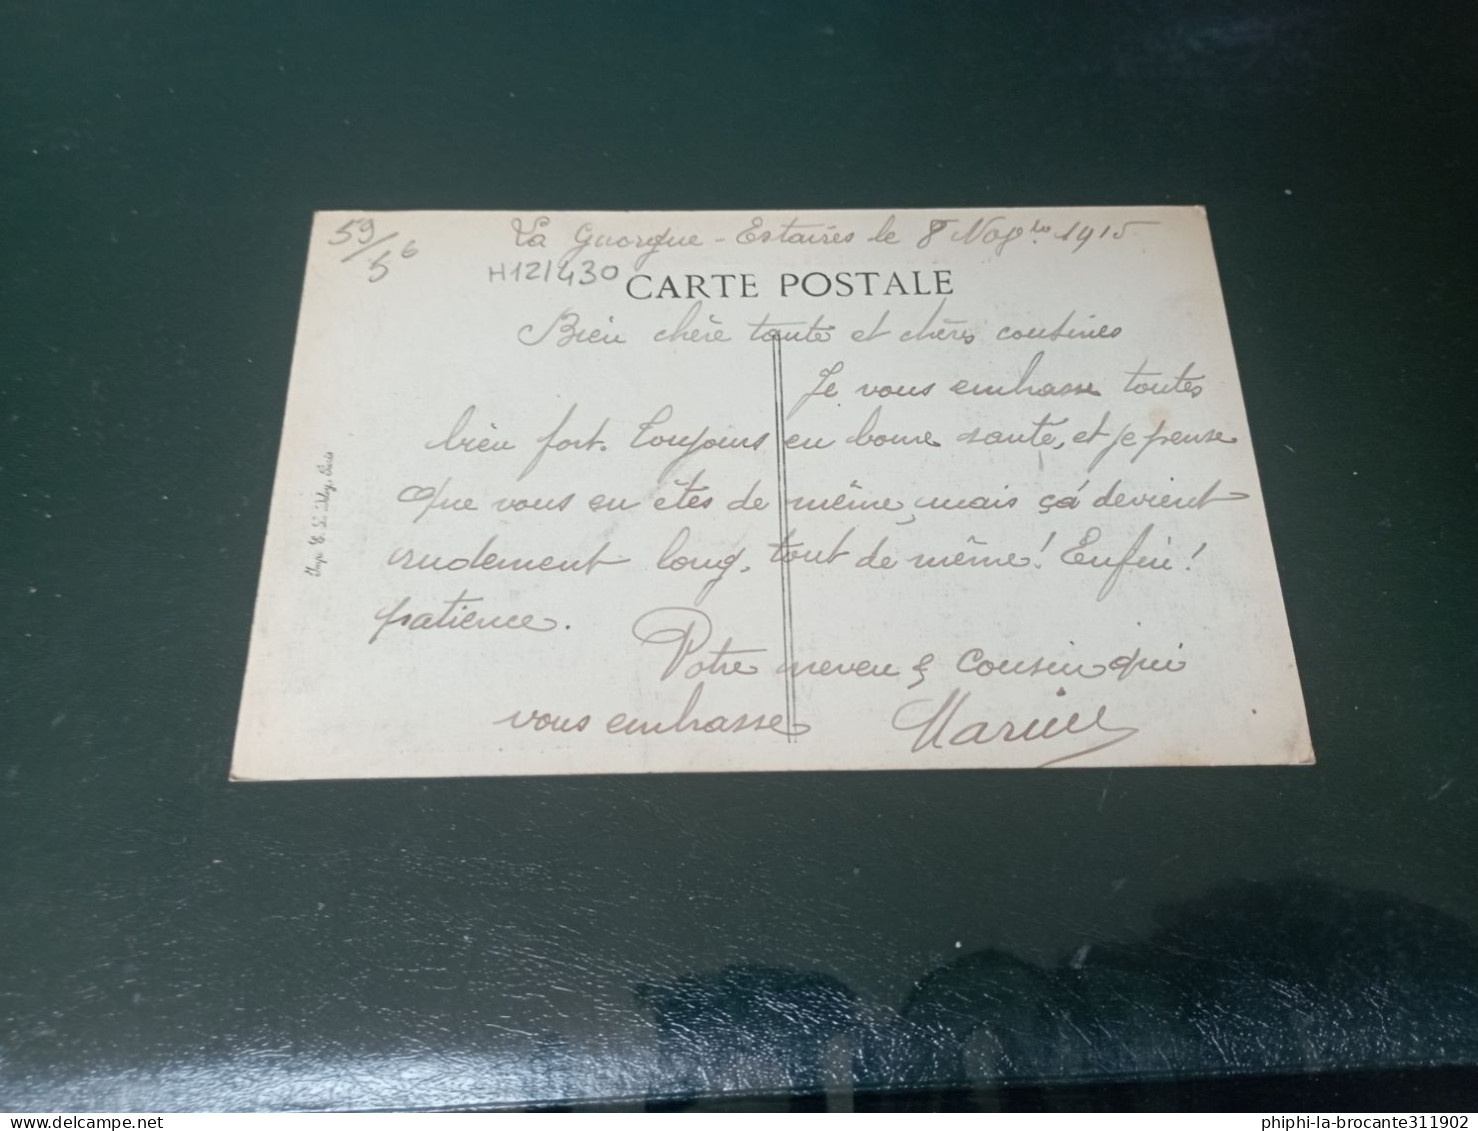 59/5 6
La Guorgue - Estaires le 8 Nov bre 1915
H121430
CARTE POSTALE
Bien chère tante et chères cousines
Je vous embrasse toutes
bien fort. Toujours en bonne santé, et je pense
que vous en êtes de même, mais ça devient
rudement long, tout de même! Enfin!
patience.
Votre neveu & cousin qui
vous embrasse Marius
Imp. Paris
phiphi-la-brocante311902